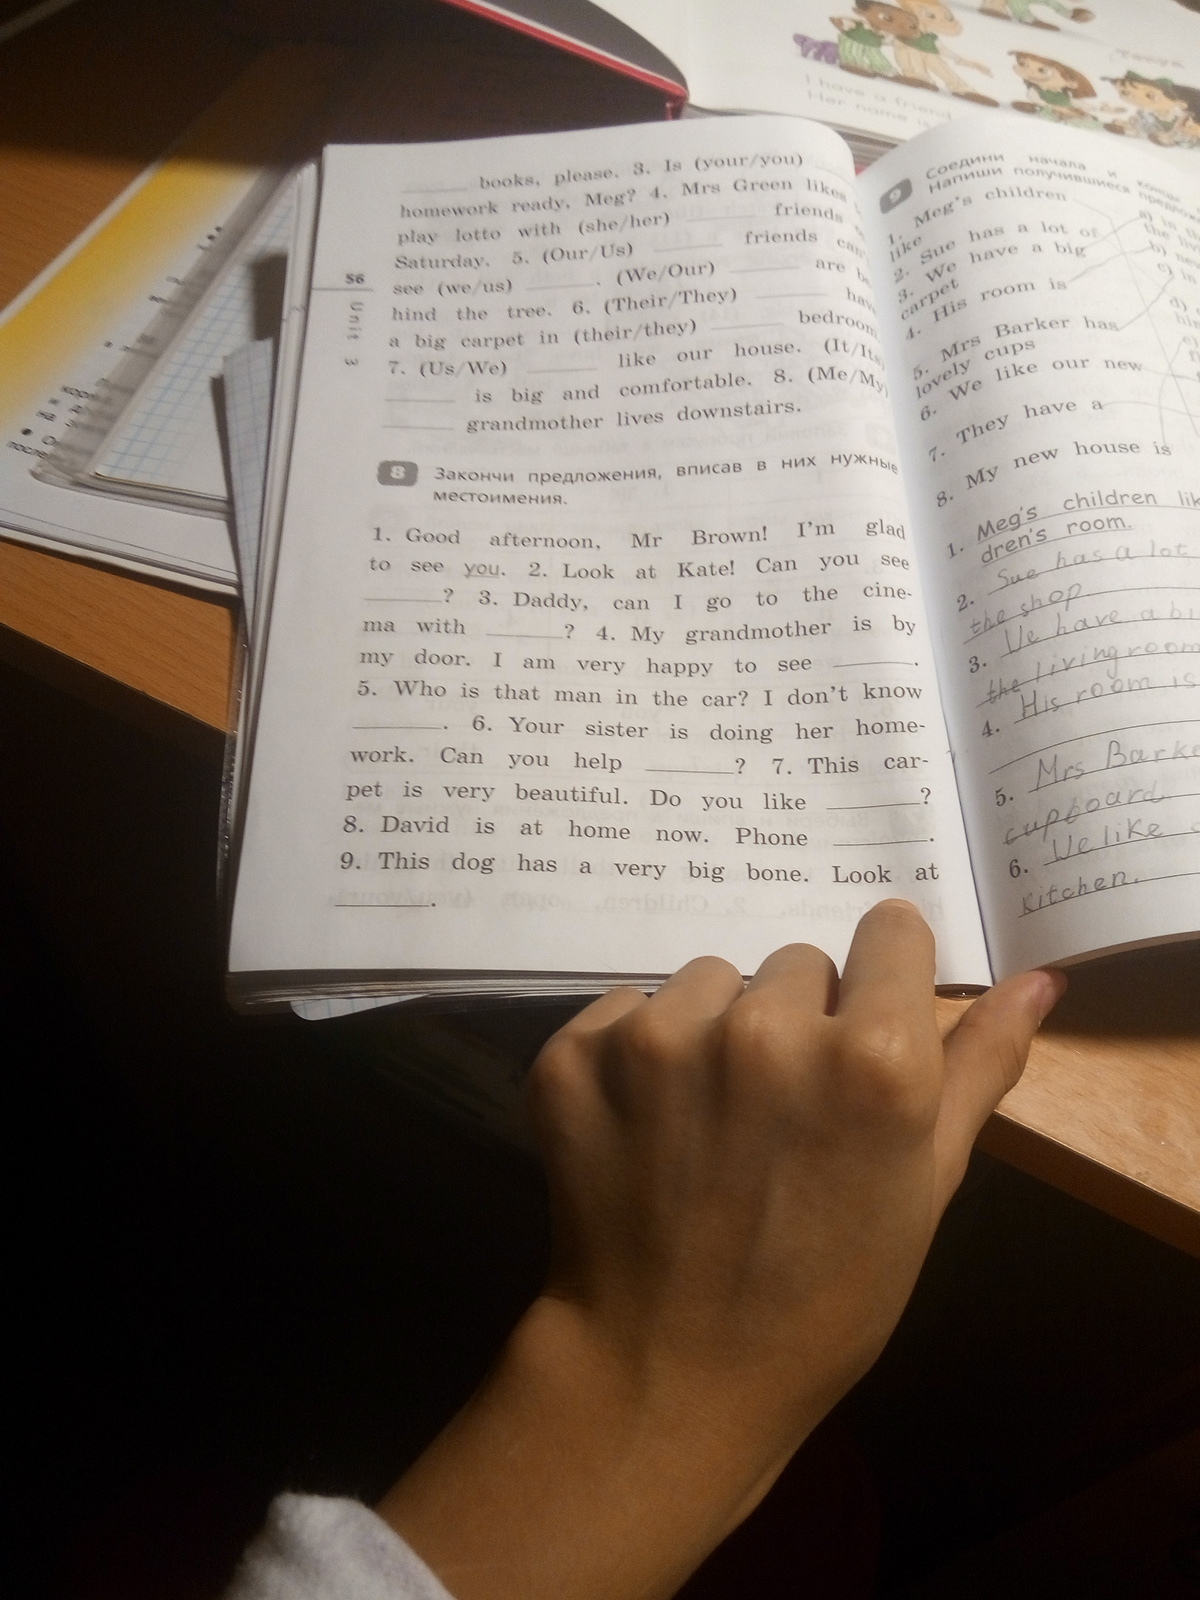 I have a friend
Her name is
books, please. 3. Is (your/you)
homework ready, Meg? 4. Mrs Green likes
play lotto with (she/her) ______ friends
Saturday. 5. (Our/Us) ______ friends can
see (we/us) ______. (We/Our) ______ are be
hind the tree. 6. (Their/They) ______ hav
a big carpet in (their/they) ______ bedroom
7. (Us/We) ______ like our house. (It/Its
______ is big and comfortable. 8. (Me/My)
______ grandmother lives downstairs.
56
Unit 3
8 Закончи предложения, вписав в них нужные
местоимения.
1. Good afternoon, Mr Brown! I'm glad
to see you. 2. Look at Kate! Can you see
______? 3. Daddy, can I go to the cine-
ma with ______? 4. My grandmother is by
my door. I am very happy to see ______.
5. Who is that man in the car? I don't know
______. 6. Your sister is doing her home-
work. Can you help ______? 7. This car-
pet is very beautiful. Do you like ______?
8. David is at home now. Phone ______.
9. This dog has a very big bone. Look at
______.
9 Соедини начала и концы
Напиши получившиеся предло
1. Meg's children
like
2. Sue has a lot of
3. We have a big
carpet
4. His room is
5. Mrs Barker has
lovely cups
6. We like our new
7. They have a
8. My new house is
a) in th
b) new
c) in
d)
e)
1. Meg's children lik
dren's room.
2. Sue has a lot
the shop
3. We have a bi
the living room
4. His room is
5. Mrs Barke
cupboard
6. We like
kitchen.